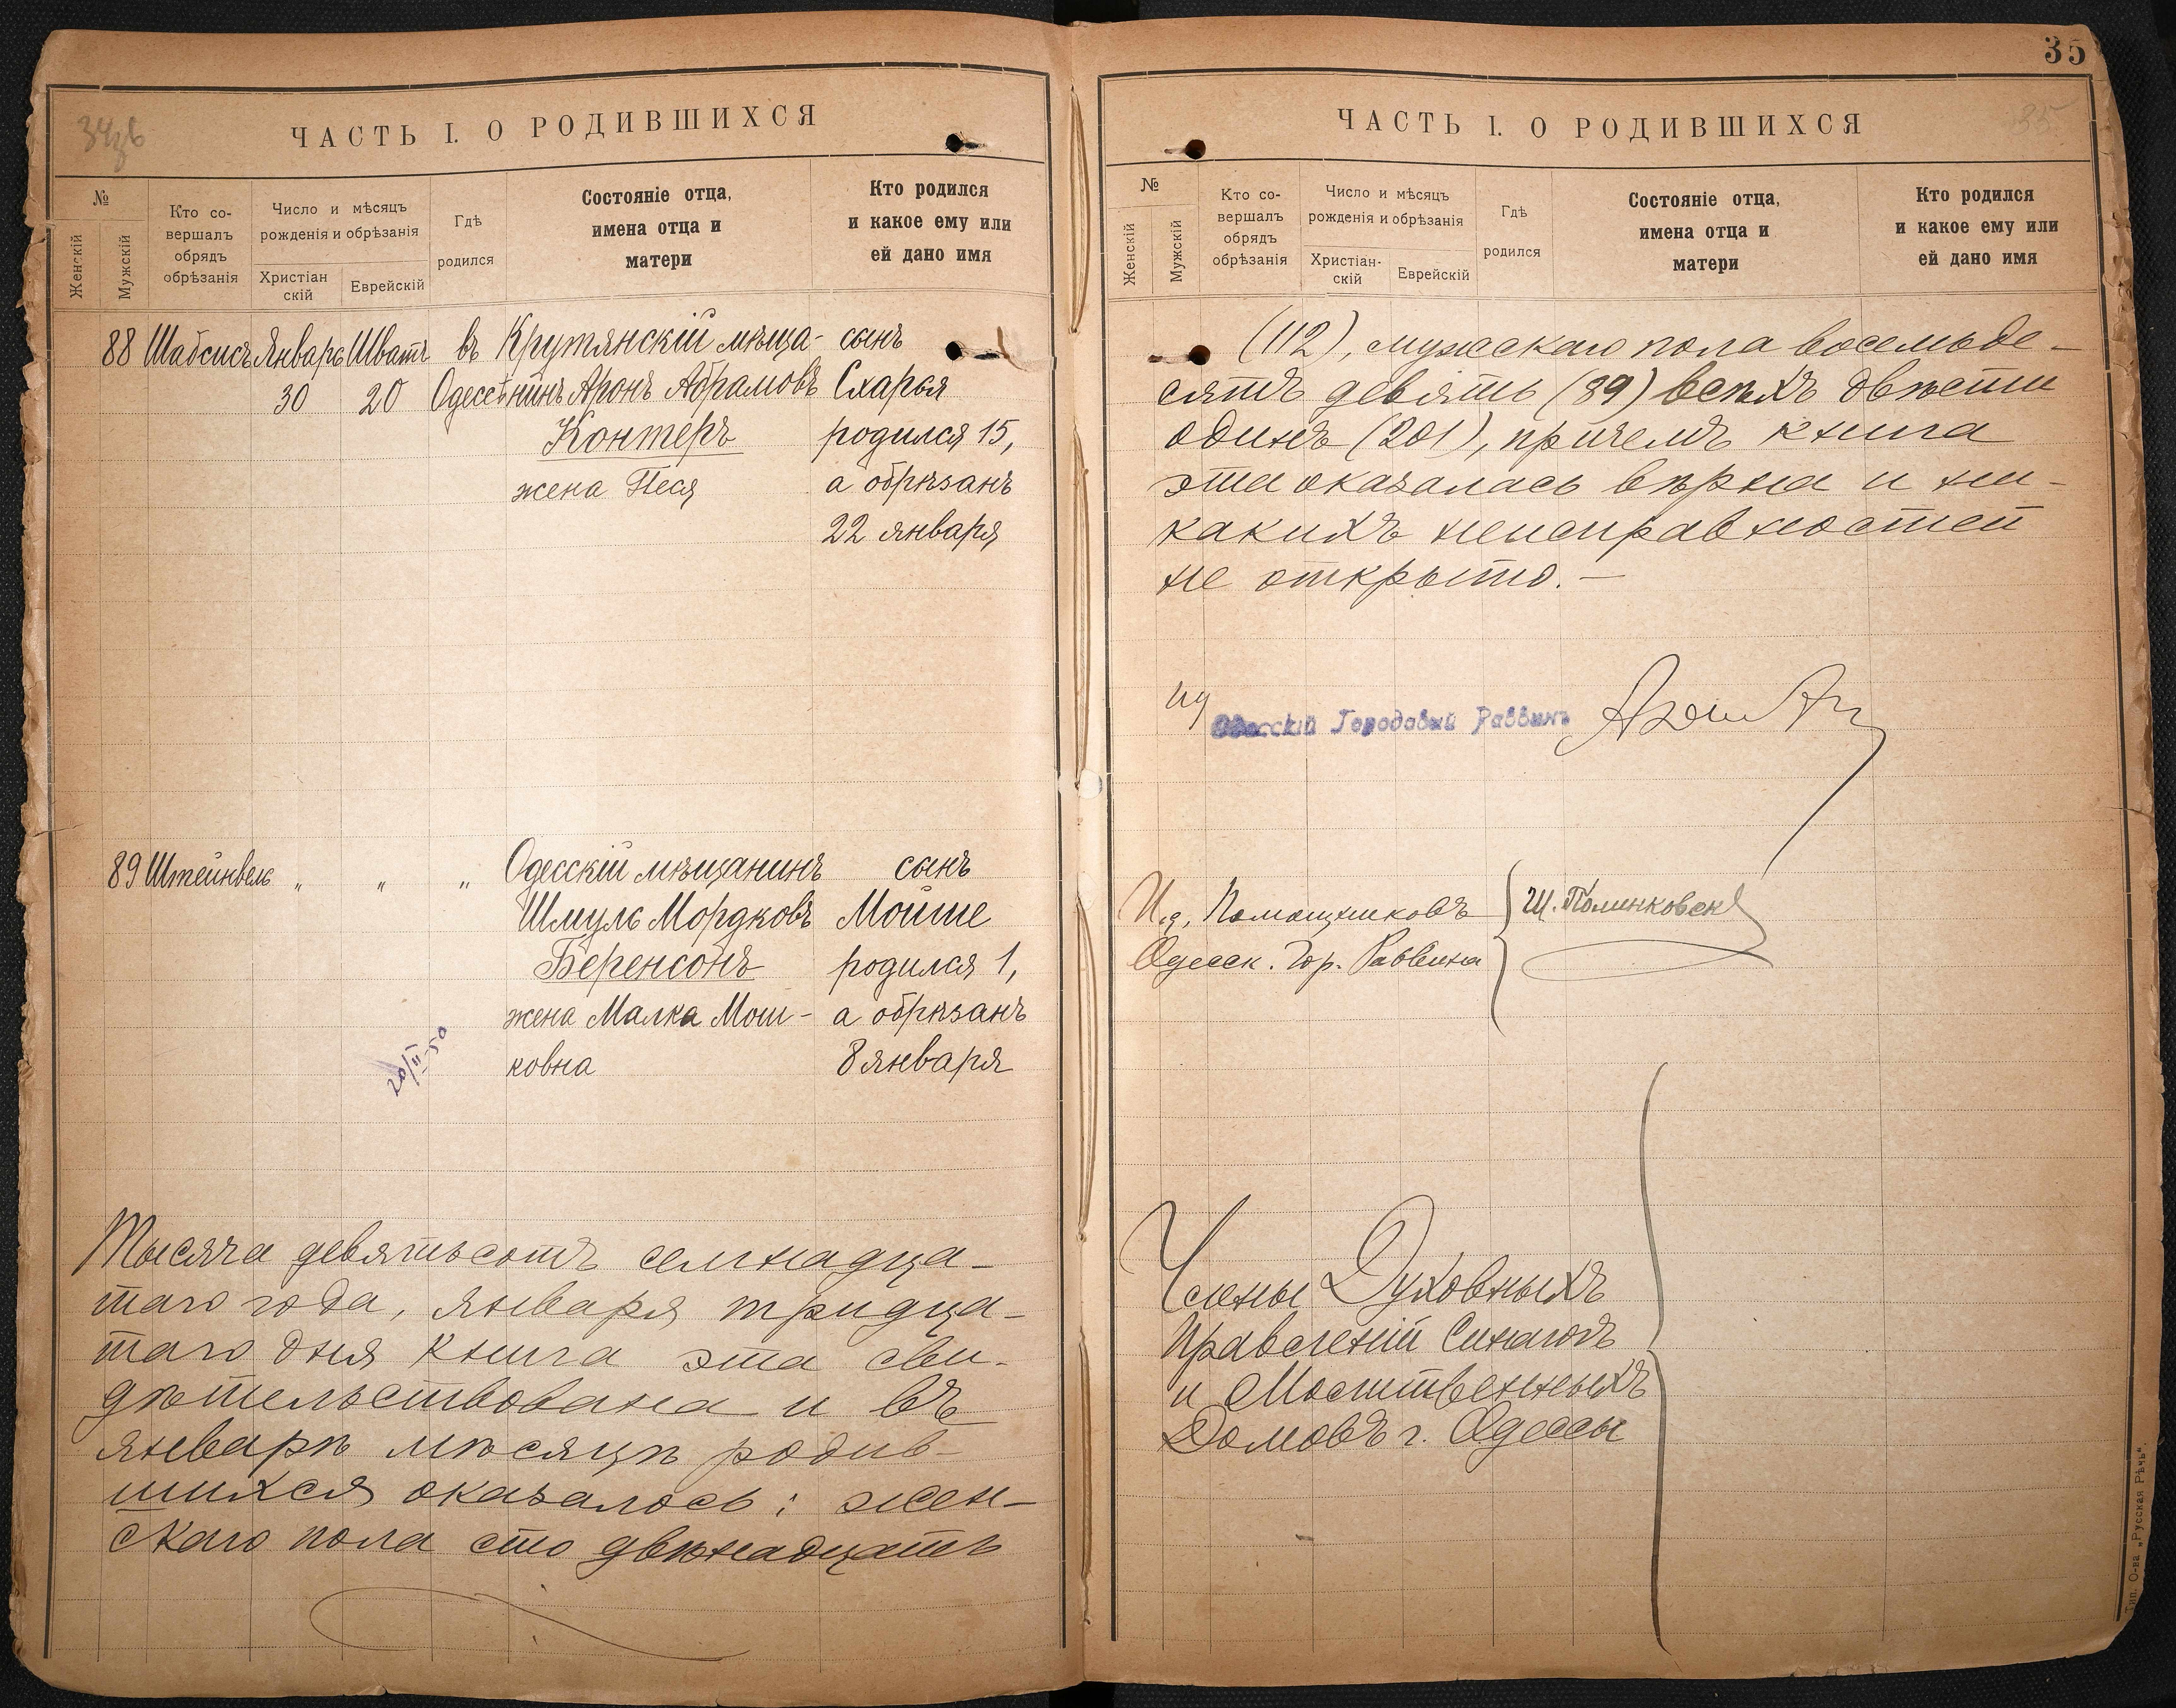 34зв
ЧАСТЬ I. О РОДИВШИХСЯ
№
Женскій
Мужскій
Кто со-
вершалъ
обрядъ
обрѣзанія
Число и мѣсяцъ
рожденія и обрѣзанія
Христіан
скій
Еврейскій
Гдѣ
родился
Состояніе отца,
имена отца и
матери
Кто родился
и какое ему или
ей дано имя
88 Шабсисъ Январь Шватъ въ Крутянскій мѣща- сынъ
30 20 Одессѣ нинъ Аронъ Абрамовъ Схарья
Контеръ родился 15,
жена Песя а обрѣзанъ
22 января
89 Штейнвель „ „ „ Одесскій мѣщанинъ сынъ
Шмуль Мордковъ Мойше
Беренсонъ родился 1,
жена Малка Мош- а обрѣзанъ
ковна 8 января
20/II-50
Тысяча девятьсотъ семнадца-
таго года, января тридца-
таго дня книга эта сви-
дѣтельствована и въ
январѣ мѣсяцѣ родив-
шихся оказалось: жен-
скаго пола сто двѣнадцать
35
35
ЧАСТЬ I. О РОДИВШИХСЯ
№
Женскій
Мужскій
Кто со-
вершалъ
обрядъ
обрѣзанія
Число и мѣсяцъ
рожденія и обрѣзанія
Христіан-
скій
Еврейскій
Гдѣ
родился
Состояніе отца,
имена отца и
матери
Кто родился
и какое ему или
ей дано имя
(112), мужскаго пола восемьде-
сятъ девять (89) всѣхъ двѣсти
одинъ (201), причемъ книга
эта оказалась вѣрна и ни-
какихъ неисправностей
не открыто.—
ид Одесскій Городовый Раввинъ
И.д. Помощниковъ Ш. Полинковск
Одесск. Гор. Раввина
Члены Духовныхъ
Правленій Синагогъ
и Молитвенныхъ
Домовъ г. Одессы
Тип. О-ва „Русская Рѣчь".